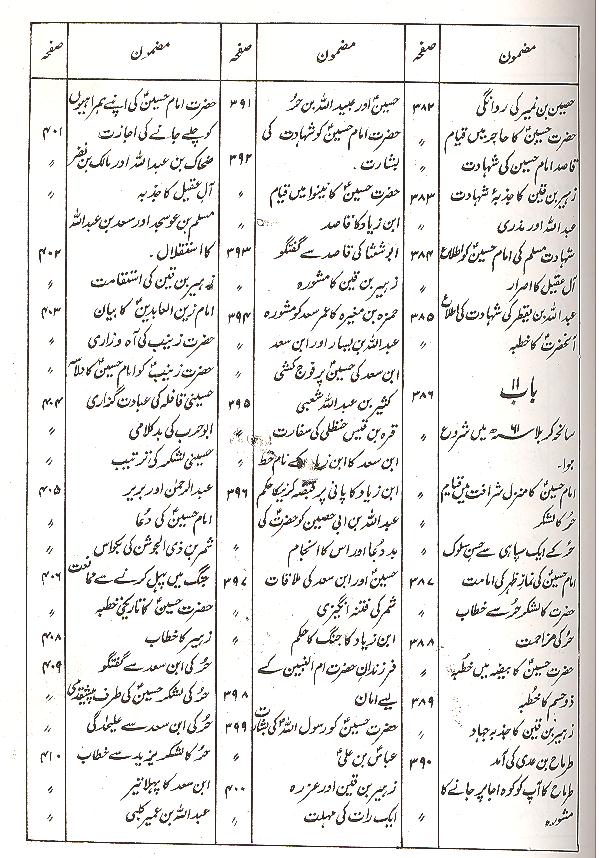 مضمون صفحہ مضمون صفحہ مضمون صفحہ
حصین بن نمیر کی روانگی ۳۸۲
حضرت حسینؑ کا حاجر میں قیام 〃
قاصد امام حسین کی شہادت 〃
زہیر بن قین کا جذبۂ شہادت ۳۸۳
عبداللہ اور مذری 〃
شہادت مسلم کی امام حسینؑ کو اطلاع ۳۸۴
آل عقیل کا اصرار 〃
عبداللہ بن یقطر کی شہادت کی اطلاع ۳۸۵
آنحضرتؑ کا خطبہ 〃
باب ۱۱ ۳۸۶
سانحہ کربلا ۶۱ھ میں شروع
ہوا۔
امام حسینؑ کا منزل شرافت میں قیام 〃
حُر کا لشکر 〃
حُر کے ایک سپاہی سے حسن سلوک 〃
امام حسینؑ کی نماز ظہر کی امامت ۳۸۷
حضرت کا لشکر حُر سے خطاب 〃
حُر کی مزاحمت ۳۸۸
حضرت حسینؑ کا بیضہ میں خطبہ 〃
ذو حسم کا خطبہ ۳۸۹
زہیر بن قین کا جذبہ جہاد 〃
طرماح بن عدی کی آمد ۳۹۰
طرماح کا آپ کو کوہ اجا پر جانے کا
مشورہ 〃
حسینؑ اور عبیداللہ بن حُر ۳۹۱
حضرت امام حسینؑ کو شہادت کی
بشارت۔ ۳۹۲
حضرت حسینؑ کا نینوا میں قیام 〃
ابن زیاد کا قاصد 〃
ابو شعثا کی قاصد سے گفتگو ۳۹۳
زہیر بن قین کا مشورہ 〃
حمزہ بن مغیرہ کا عمر سعد کو مشورہ ۳۹۴
عبداللہ بن یسار اور ابن سعد 〃
ابن سعد کی حسینؑ پر فوج کشی 〃
کثیر بن عبداللہ شعبی ۳۹۵
قرہ بن قیس حنظلی کی سفارت 〃
ابن سعد کا ابن زیاد کے نام خط 〃
ابن زیاد کا پانی پر قبضہ کرنیکا حکم ۳۹۶
عبداللہ بن ابی حصین کو حضرتؑ کی
بددعا اور اس کا انجام 〃
حسینؑ اور ابن سعد کی ملاقات ۳۹۷
شمر کی فتنہ انگیزی 〃
ابن زیاد کا جنگ کا حکم 〃
فرزندانِ حضرت ام البنین کے
لیے امان ۳۹۸
حضرت حسینؑ کو رسول اللہؐ کی بشارت ۳۹۹
عباس بن علیؑ 〃
زہیر بن قین اور عزرہ ۴۰۰
ایک رات کی مہلت 〃
حضرت امام حسینؑ کی اپنے ہمراہیوں
کو چلے جانے کی اجازت ۴۰۱
ضحاک بن عبداللہ اور مالک بن نضر 〃
آلِ عقیل کا جذبہ 〃
مسلم بن عوسجہ اور سعد بن عبداللہ
کا استقلال۔ ۴۰۲
زہیر بن قین کی استقامت 〃
امام زین العابدینؑ کا بیان ۴۰۳
حضرت زینب کی آہ و زاری 〃
حضرت زینبؑ کو امام حسینؑ کا دلاسہ 〃
حسینی قافلہ کی عبادت گذاری ۴۰۴
ابو حرب کی بدکلامی 〃
حسینی لشکر کی ترتیب 〃
عبدالرحمٰن اور بریر ۴۰۵
امام حسینؑ کی دُعا 〃
شمر بن ذی الجوشن کی بکواس 〃
جنگ میں پہل کرنے سے ممانعت ۴۰۶
حضرت حسینؑ کا تاریخی خطبہ 〃
زہیر کا خطاب ۴۰۸
حُر کی ابن سعد سے گفتگو ۴۰۹
حُر کی لشکر حسینؑ کی طرف پیشقدمی 〃
حُر کی ابن سعد سے علیحدگی 〃
حُر کا لشکر یزید سے خطاب ۴۱۰
ابن سعد کا پہلا تیر 〃
عبداللہ بن عمیر کلبی 〃